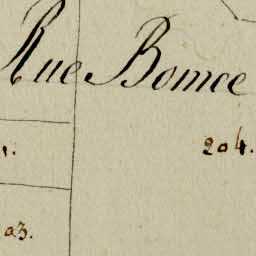 Rue Bomce
1.
204.
03.